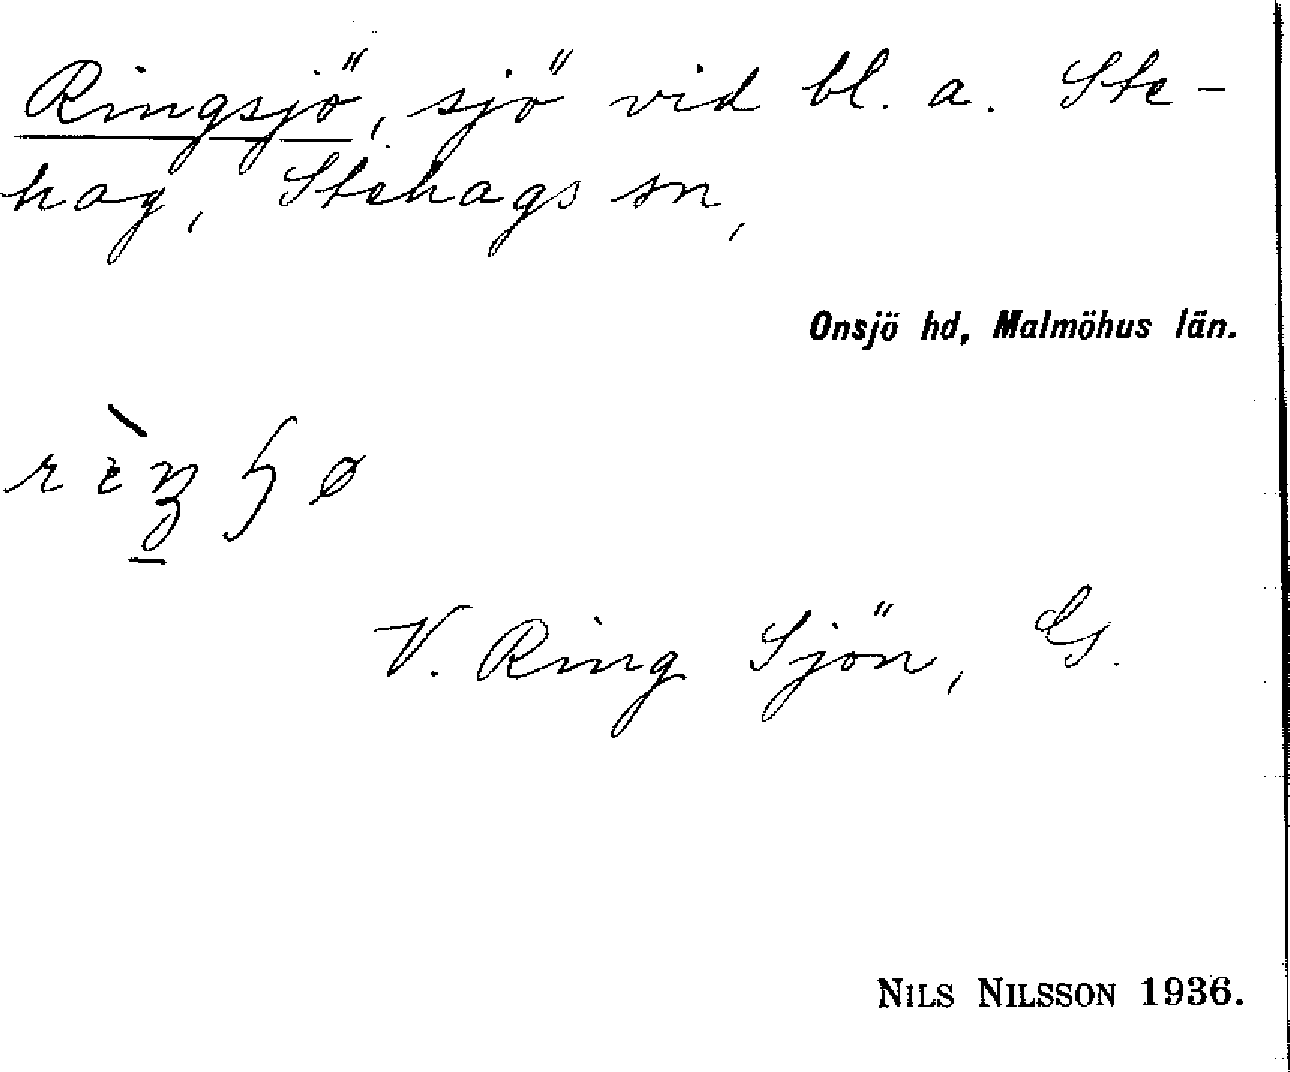 Ringsjö, sjö vid bl. a. Ste-
hag, Stehags sn,
Onsjö hd, Malmöhus län.
V. Ring Sjön, G.
NILS NILSSON 1936.